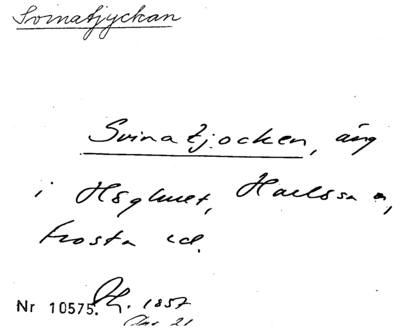 Svinatjyckan
Svinatjocken, äng
i Höghult, Harlösa s,
Frosta hd.
Nr 10575. Lh. 1857